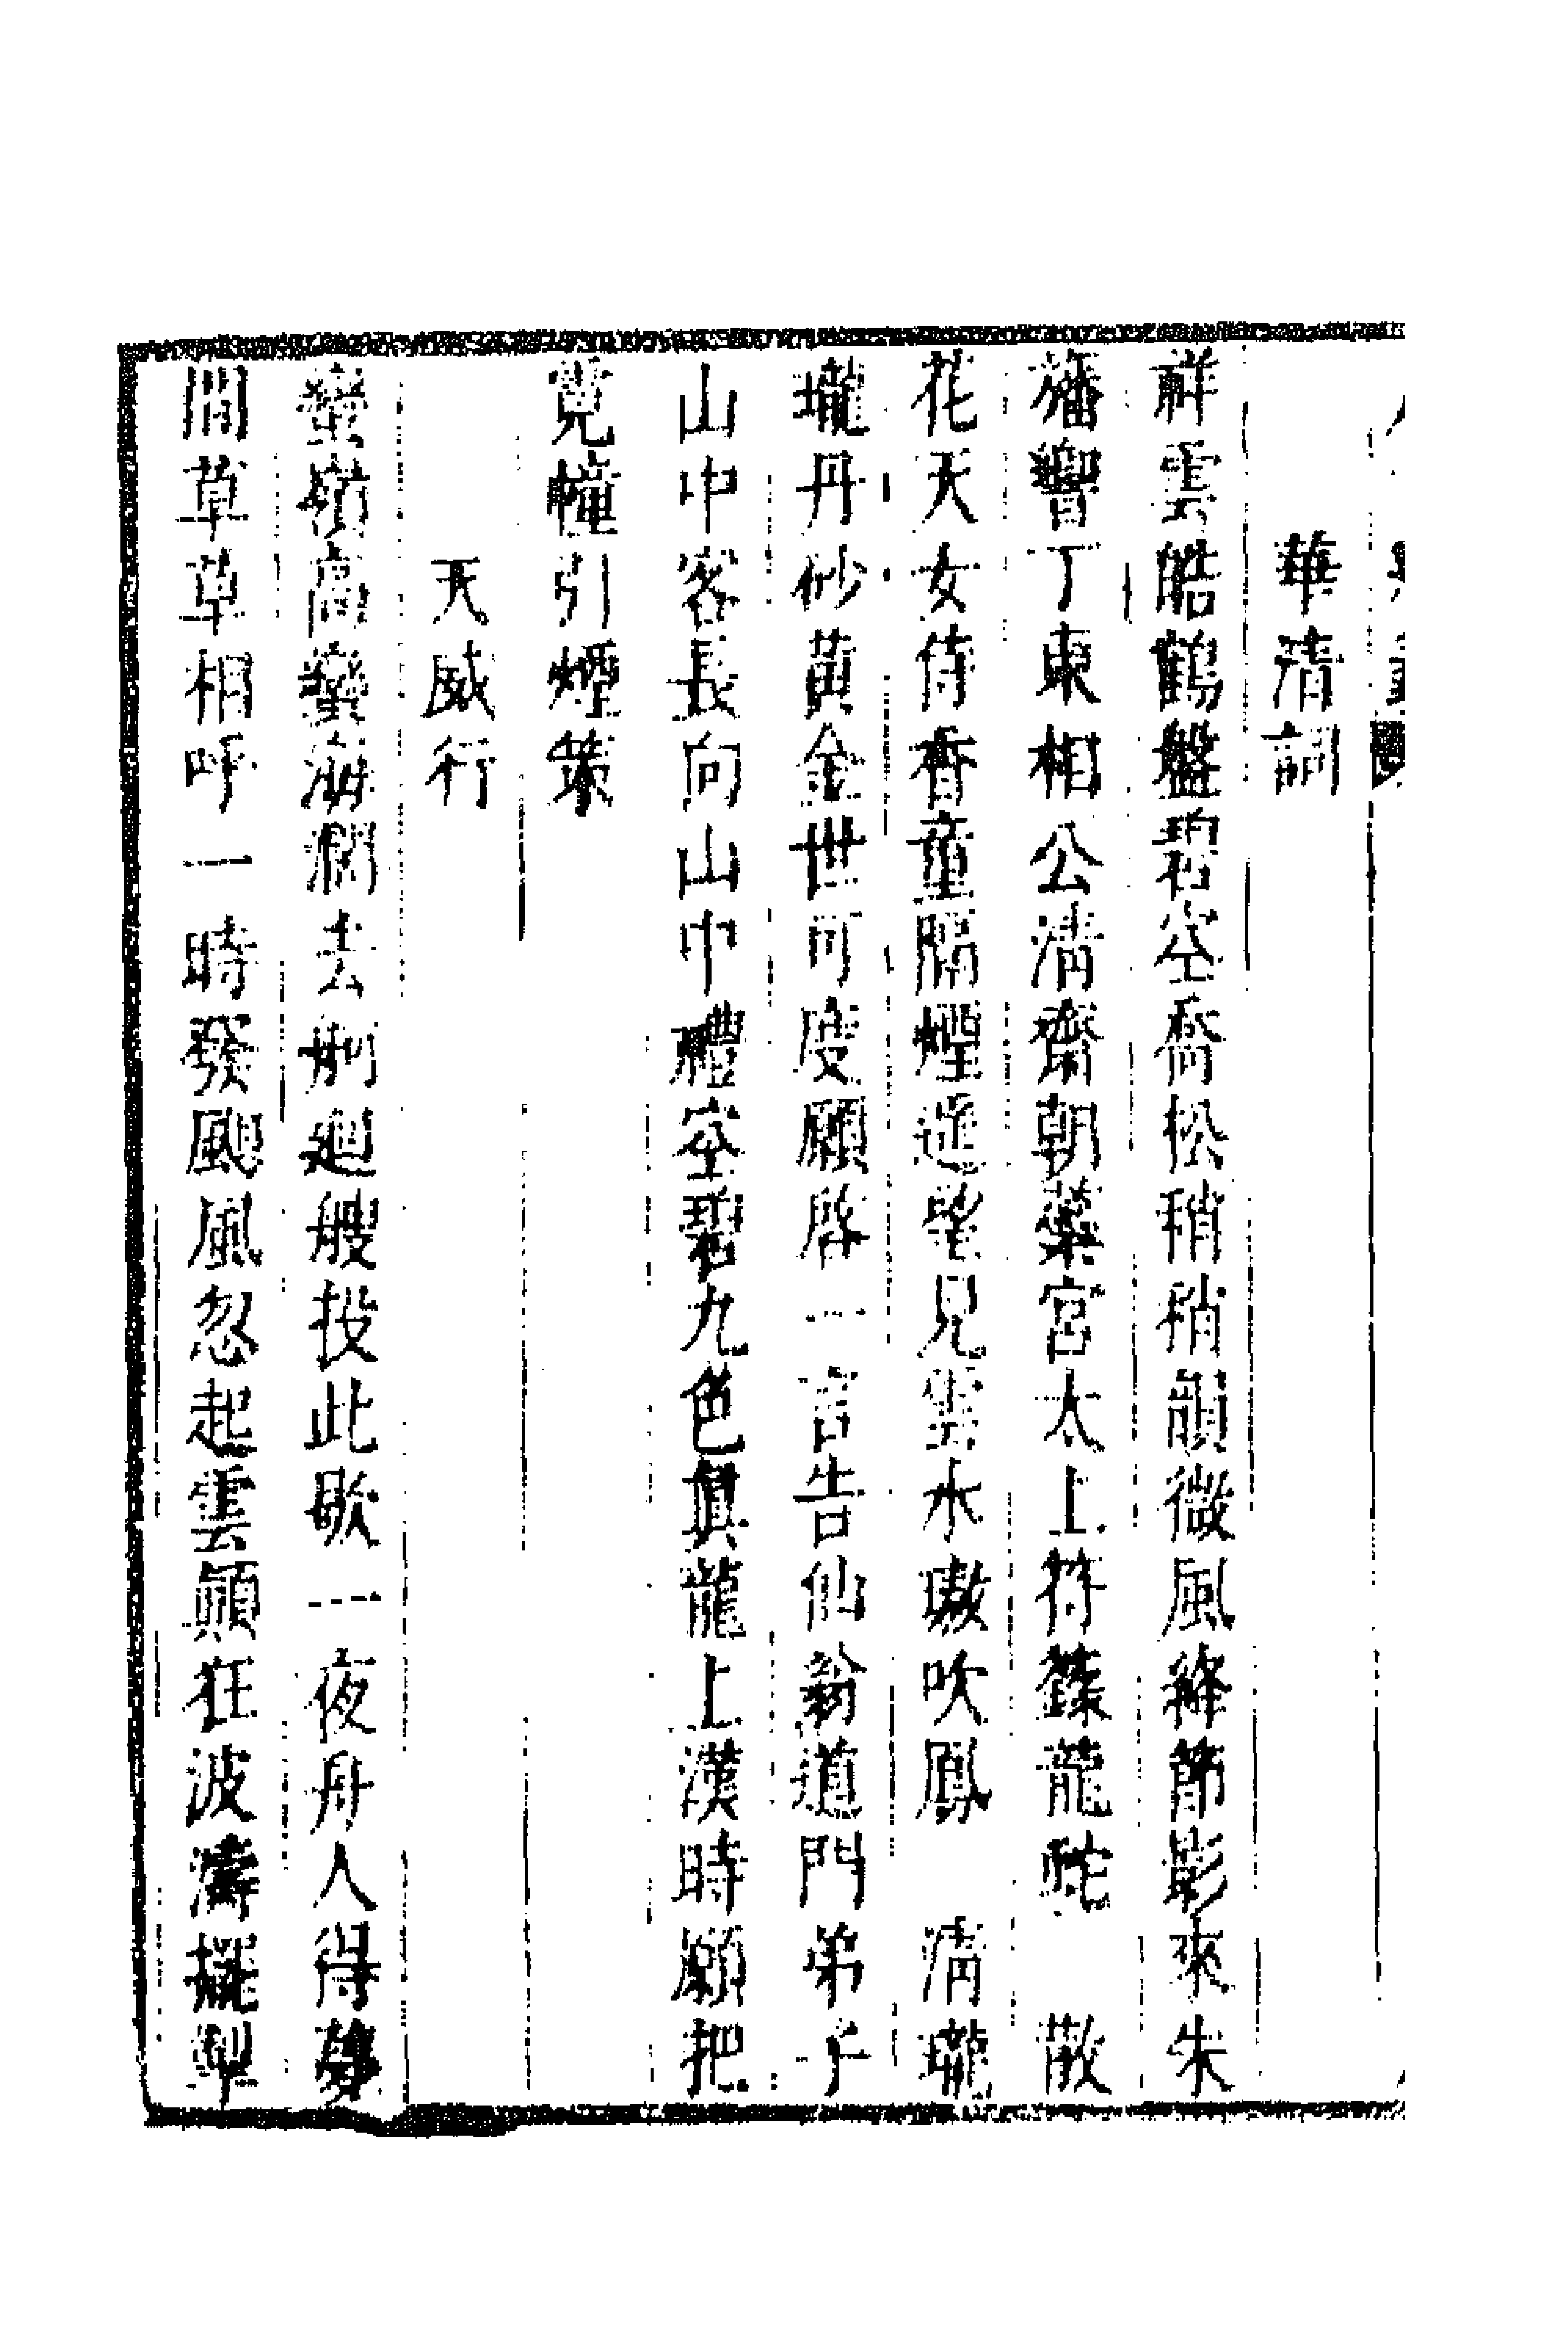 華清詞
祥雲皓鶴盤碧空喬松稍稍韻微風絳節影來朱
旛響丁東相公清齋朝蘂宮太上符籙龍蛇 散
花天女侍香童隔煙遥望見雲水璈吹鳳 清瓏
瓏丹砂黃金世可度願啓一言告仙翁道門弟子
山中客長向山中禮空碧九色真龍上漢時願把
霓幢引煙策
天威行
蠻嶺高蠻海濶去舸廻艘投此歇一夜舟人得夢
間草草相呼一時發颶風忽起雲顛狂波濤擺掣